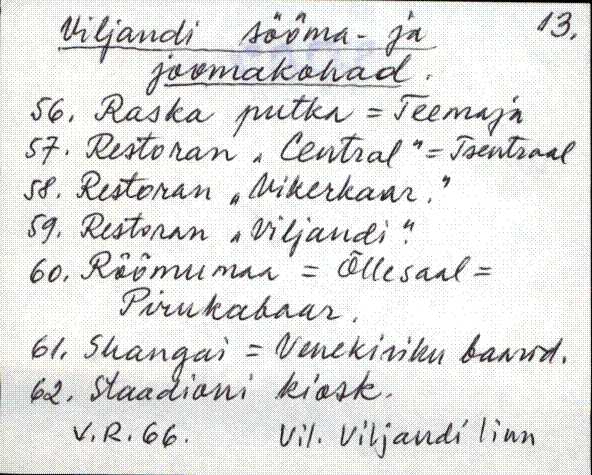 Viljandi sööma- ja 13.
joomakohad.
56. Raska putka = Teemaja
57. Restoran „Central" = Tsentraal
58. Restoran „Vikerkaar."
59. Restoran „Viljandi".
60. Rõõmumaa = Õllesaal =
Pirukabaar.
61. Shangai = Venekiriku baarid.
62. Staadioni kiosk.
V.R. 66. Vil. Viljandi linn